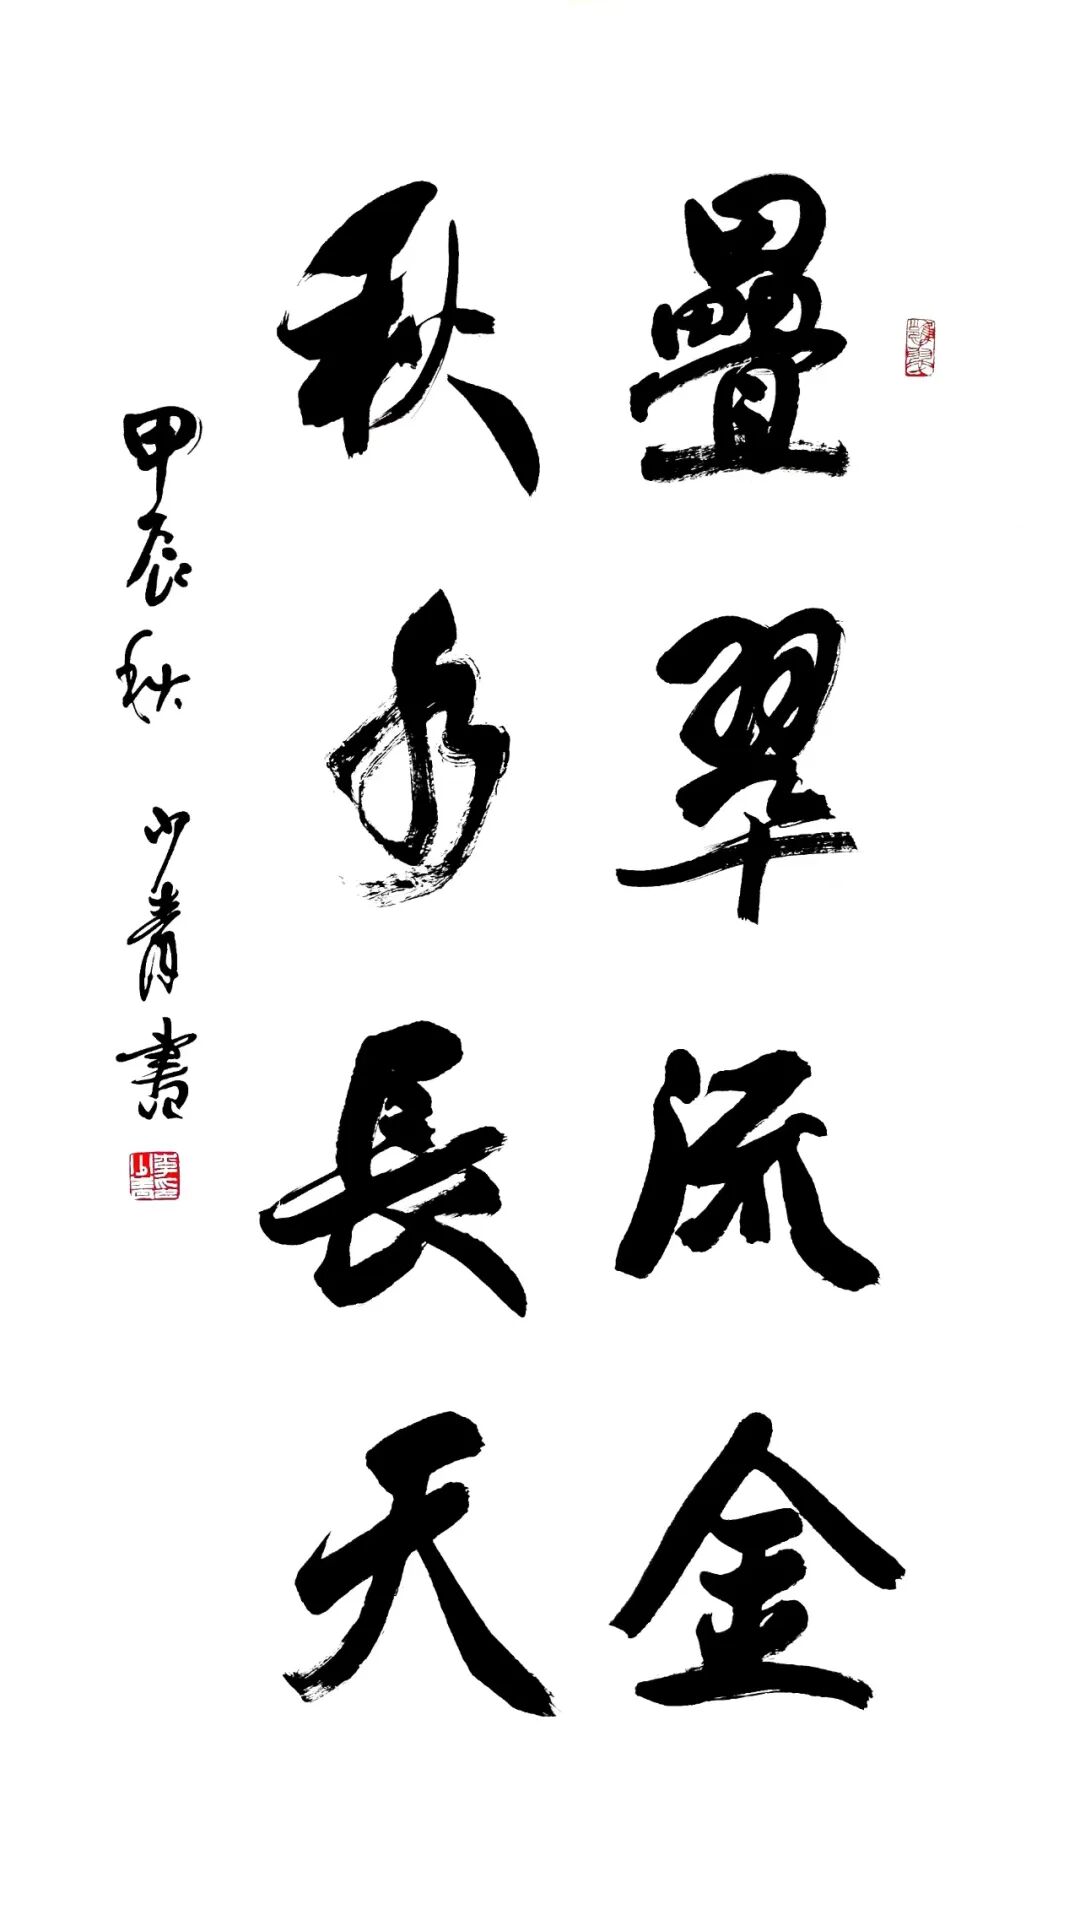 疊翠流金
秋水長天
甲辰秋 少青書